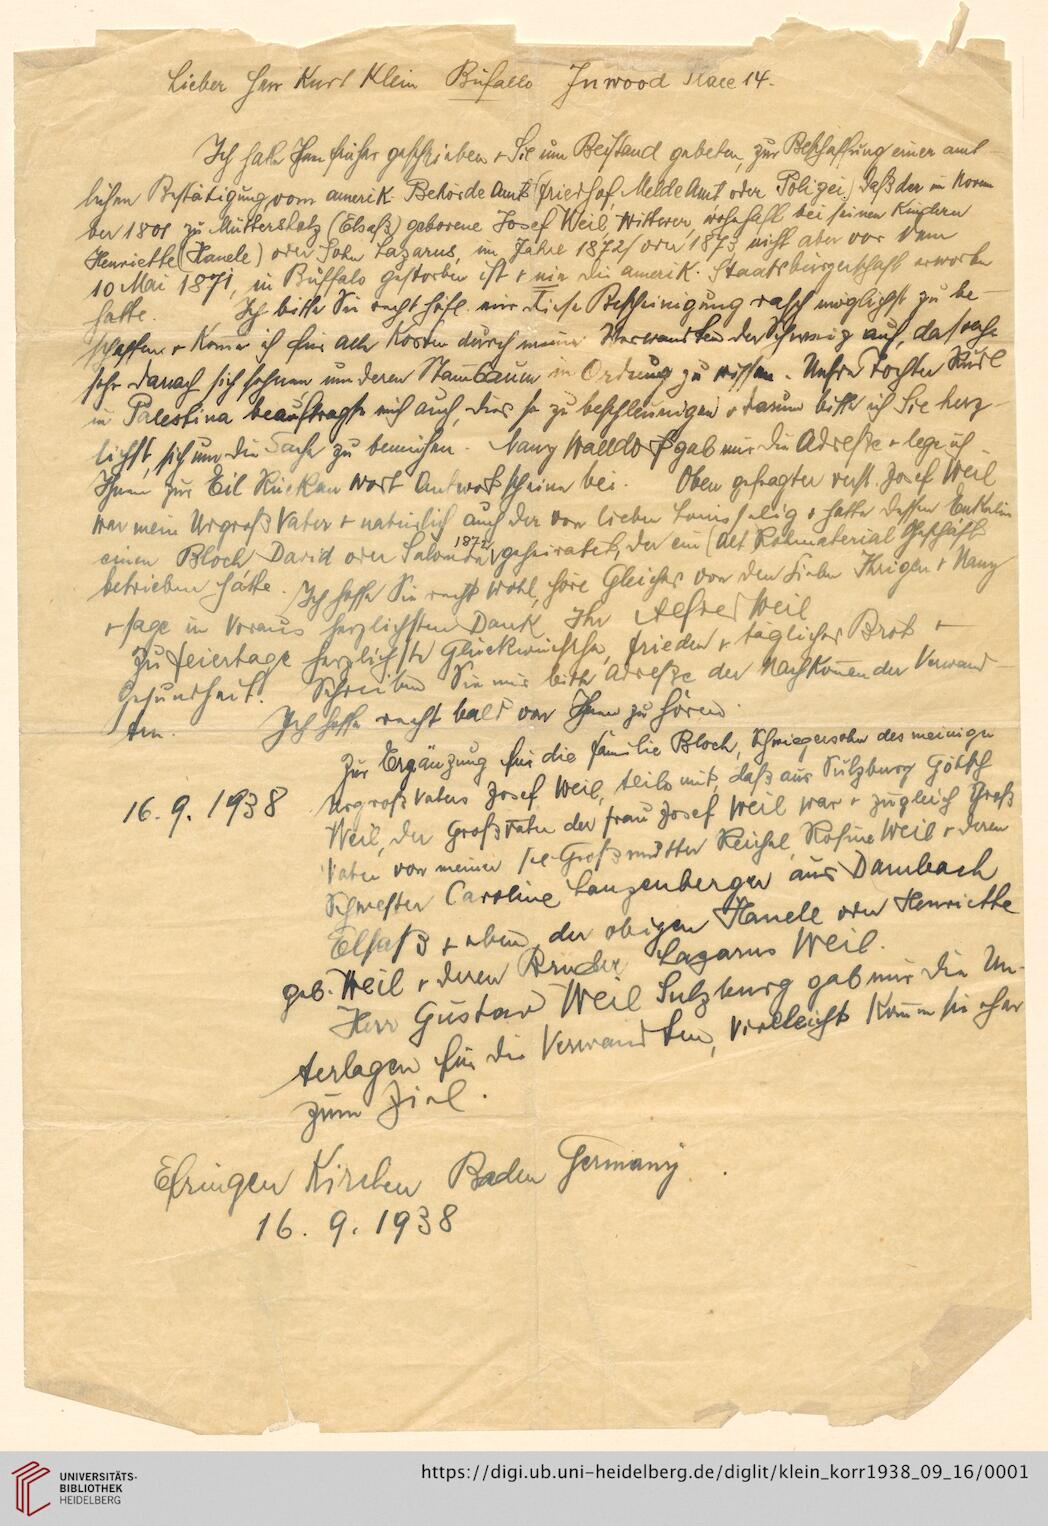 Lieber Herr Kurt Klein Büfallo Inwood Place 14.
Ich habe Ihnen früher geschrieben + Sie um Beistand gebeten, zur Beschaffung einer amt-
lichen Bestätigung vom amerik. Behörde Amts (Friedhof, MeldeAmt, oder Polizei) daß der im Novem
ber 1801 zu Müttersholz (Elsaß) geborene Josef Weil, Wittwer, wohnhaft bei seinen Kindern
Henriette (Hanele) oder Sohn Lazarus, im Jahre 1872/ oder 1873 nicht aber vor dem
10 Mai 1871, in Büffalo gestorben ist + nie die amerik. Staatsbürgerschaft erworben
hatte. Ich bitte Sie recht höfl. mir diese Bescheinigung rasch möglichst zu be-
schaffen + komme ich für alle Kosten durch meine Verwandten der Schweiz auf, da solche
sehr danach sich sehnen um deren Stambaum in Ordnung zu wissen. Unsre Tochter
in Palestina beauftragte mich auch, dies so zu beschleunigen + darum bitte ich Sie herz-
lichst, sich um die Sache zu bemühen. Nany gab mir die Adreße + lege ich
Ihnen zur Eil Rückantwort Antwortscheine bei. Oben gefragter verst. Josef Weil
war mein Urgroß Vater + natürlich auch der von lieben Louis selig + hatte dessen Enkelin
einen Bloch David oder Salomon 1872 geheiratet, der ein (Alt Rohmaterial Geschäft
betrieben hätte. Ich hoffe Sie recht wohl, höre Gleiches von den Lieben Ihrigen + Nany
+ sage im Voraus herzlichsten Dank Ihr Alfred Weil
Zu Feiertage herzlichste Glückwünsche, Frieden + tägliches Brot +
Gesundheit. Schreiben Sie mir bitte Adreße der Nachkommen der Verwand-
ten. Ich hoffe recht bald von Ihnen zu hören.
16. 9. 1938
Zur Ergänzung für die Familie Bloch, Schwiegersohn des meinigen
Urgroß Vaters Josef Weil, teile mit, daß aus Sulzburg
Weil, der Großvater der Frau Josef Weil war + zugleich Groß
Vater von meiner sel. Großmutter Reichel, Rosine Weil + deren
Schwester Caroline Lanzenberger aus Dambach
Elsaß + eben der obigen Hanele oder Henriette
geb. Weil + deren Bruder Lazarus Weil.
Herr Gustav Weil Sulzburg gab mir die Un-
terlagen für die Verwandten, vielleicht kommen sie eher
zum Ziel.
Efringen Kirchen Baden Germany.
16. 9. 1938
UNIVERSITÄTS-
BIBLIOTHEK
HEIDELBERG
https://digi.ub.uni-heidelberg.de/diglit/klein_korr1938_09_16/0001